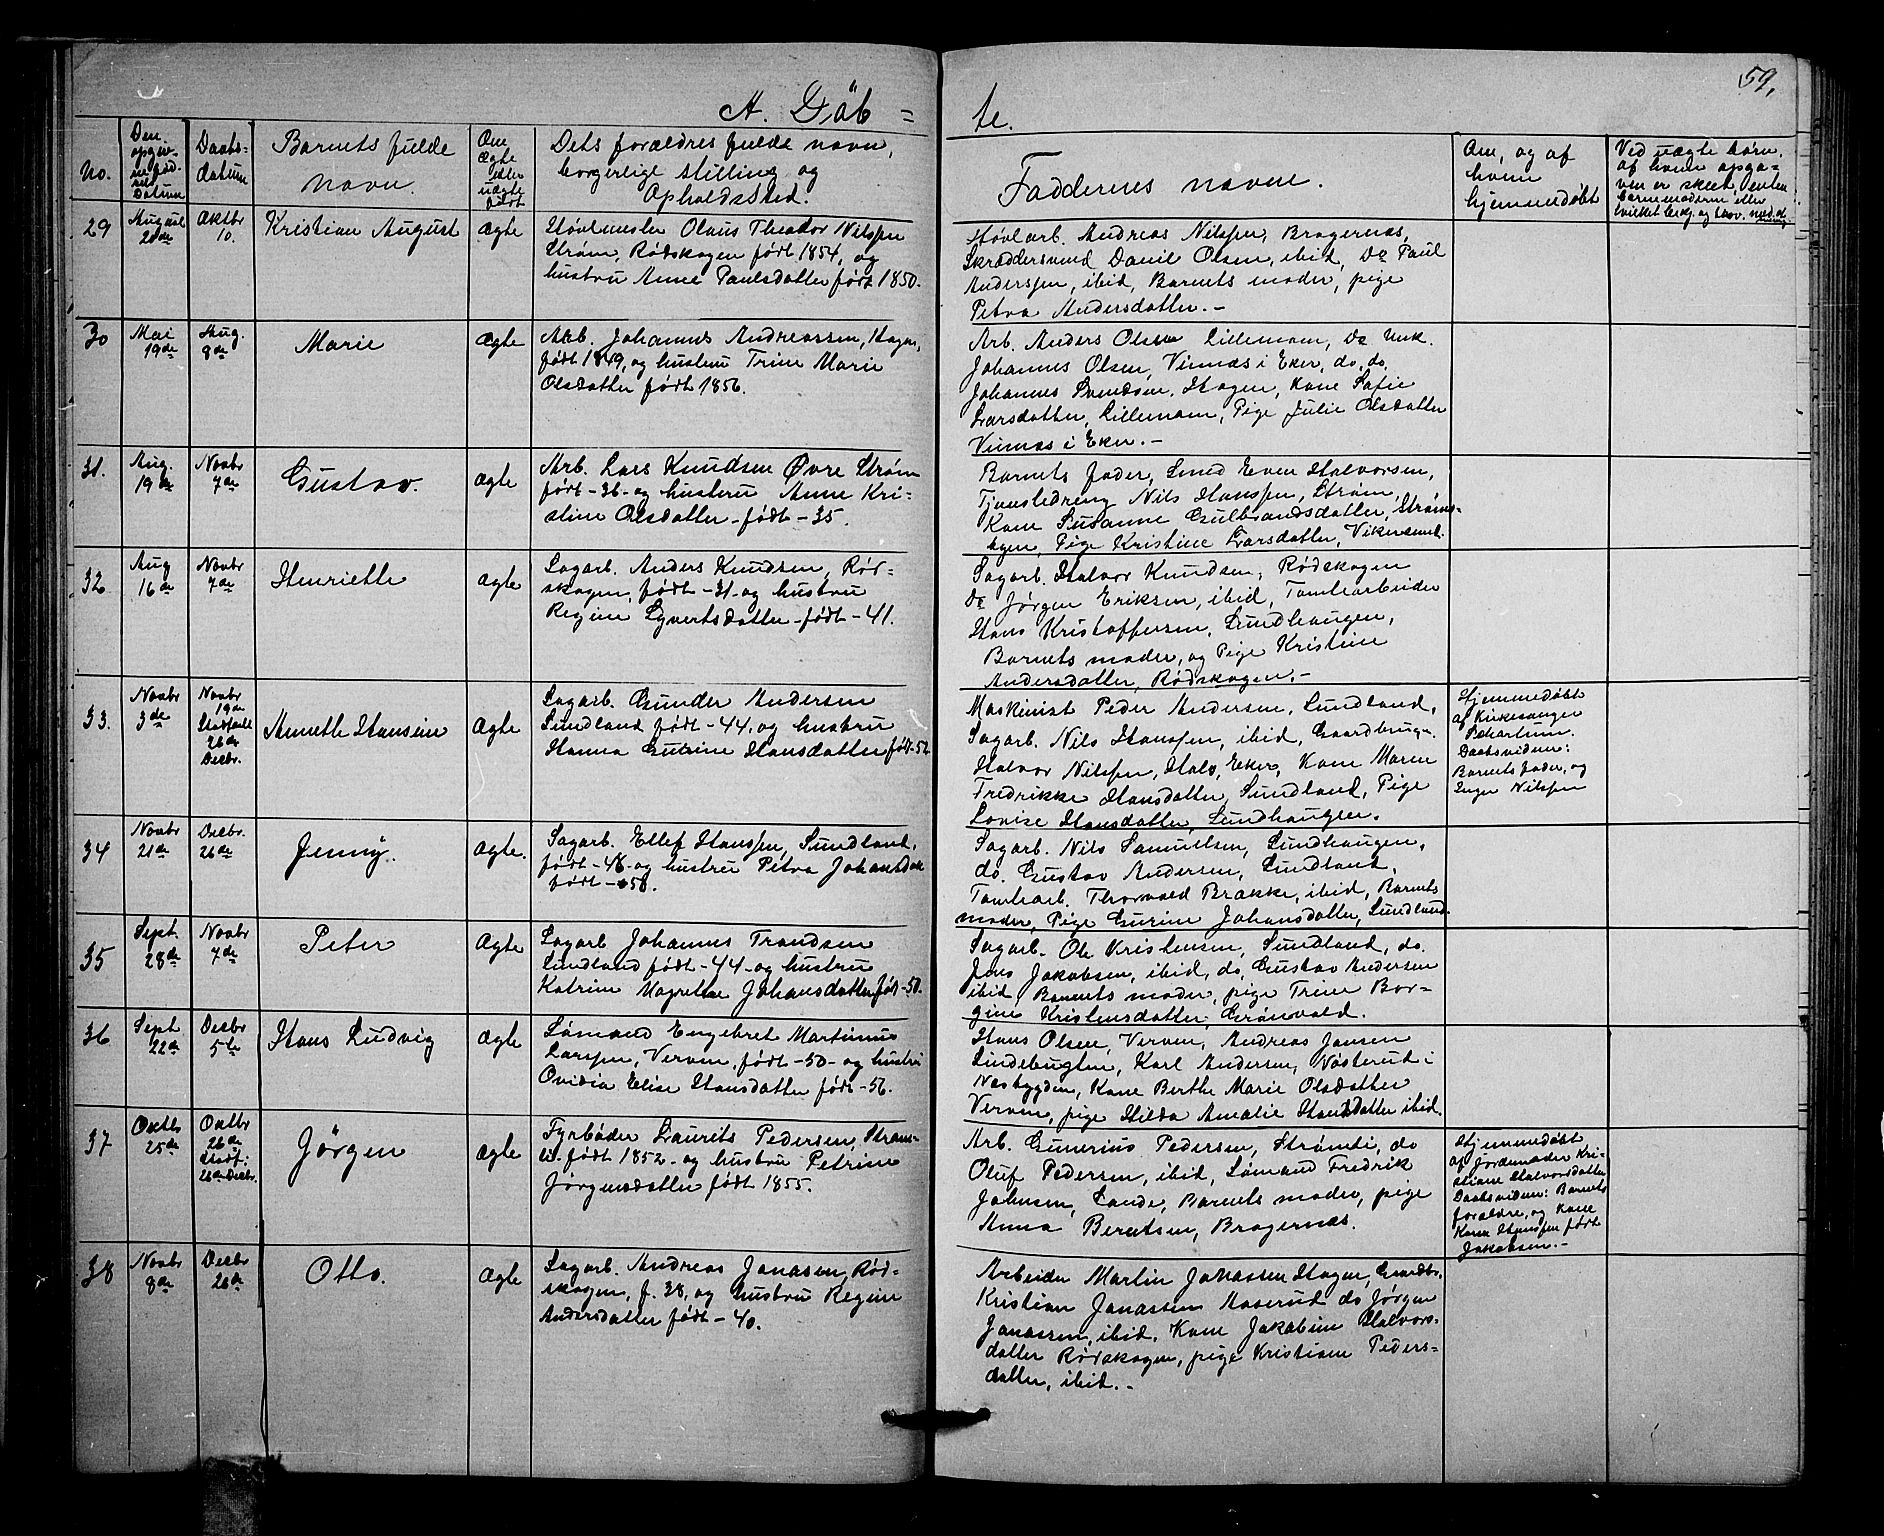 59.
A. Döb = te.
No.
Den opgivne fødsels Datum
Daabsdatum
Barnets fulde navn.
Om ægte eller uægte født
Dets forældres fulde navn, borgerlige stilling og Opholdssted.
Faddernes navne.
Om, og af hvem hjemmedøbt
Ved uægte børn, af hvem opga-
ven er skeet, enten
barnemoderen eller
29 August 21de Oktbr 10. Kristian August Ægte
Støvlemester Olaus Theodor Nilssen
Strøm, Rødskogen født 1854, og
hustru Anne Paulsdatter født 1850.
Støvlarb. Andreas Nilssen, Bragernæs,
Skræddersvend Daniel Olsen, ibid, Do Paul
Anderssen, ibid, Barnets moder, pige
Petra Andersdatter. -
30 Mai 19de Aug. 8de Marie Ægte
Arb. Johannes Andreassen, Hagen,
født 1849, og hustru Trine Marie
Olsdatter født 1856.
Arb. Anders Olsen Lillemoen, Do Unk.
Johannes Olsen, Viknæs i Eker, do. do.
Johannes Svendsen, Hagen, Kone Sofie
Larsdatter, Lillemoen, Pige Julie Olsdatter
Viknæs i Eker. -
31. Aug. 19de Novbr 7de Gustav. Ægte
Arb. Lars Knudsen Øvre Strøm
født - 36 - og hustru Anne Kri-
stine Olsdatter - født - 35.
Barnets fader, Smed Even Halvorsen,
Tjenstedreng Nils Hanssen, Strøm,
Kone Susanne Gulbrandsdatter, Strøms-
ogen, Pige Kristine Larsdatter,
32 Aug 16de Novbr 7de Henriette Ægte
Sagarb. Anders Knudsen, Rød-
skogen, født - 31 - og hustru
Regine Syvertsdatter - født - 41.
Sagarb. Halvor Knudsen, Rødskogen
Do Jørgen Eriksen, ibid, Tomtearbeider
Hans Kristoffersen, Sundhaugen,
Barnets moder, og Pige Kristine
Andersdatter, Rødskogen. -
33. Novbr 3de Novbr 19de Stadfæstet 26de Decbr. Annette Hansine Ægte
Sagarb. Gunder Andersen
Sundland født - 44, og hustru
Hanna Gurine Hansdatter født - 52
Maskinist Peder Andersen, Sundland,
Sagarb. Nils Hanssen, ibid, Gaardbrug.
Halvor Nilssen, Hals, Eker, Kone Maren
Fredrikke Hansdatter, Sundland, Pige
Lovise Hansdatter, Sundhaugen.
Hjemmedøbt
af Kirkesanger
Scharlum.
Daabsvidner:
Barnets fader, og
Inger Nilssen
34 Novbr 21de Decbr. 26de Jenny. Ægte.
Sagarb. Ellef Hanssen, Sundland,
født - 48 - og hustru Petra Johansdat
født - 58.
Sagarb. Nils Samuelsen, Sundhaugen,
do. Gustav Andersen, Sundland,
Tomtearb. Thorvald Brakke, ibid, Barnets
moder, Pige Gurine Johansdatter, Sundland.
35 Sept. 28de Novbr 7de Peter Ægte
Sagarb Johannes Trondsen
Sundland født - 44 - og hustru
Katrine Magrethe Johansdatter født - 50.
Sagarb. Ole Kristensen, Sundland, do.
Jens Jakobsen, ibid, do, Gustav Andersen
ibid, Barnets moder, pige Trine Bor-
gine Kristensdatter, Grønvold.
36 Sept 22de Decbr 5te Hans Ludvig Ægte
Sømand Engebret Martinius
Larssen, Verven, født - 50 - og hustru
Ovidia Elise Hansdatter født - 56.
Hans Olsen, Verven, Andreas Jansen
Lindebugten, Karl Andersen, Nøsterud i
Næsbygden, Kone Berthe Marie Olsdatter
Verven, pige Hilda Amalie Hansdatter ibid.
37 Oktb 25de Octbr 26de Stadf: 26de Decbr. Jørgen Ægte
Fyrbøder Laurits Pedersen, Strøms-
li. født 1852 - og hustru Petrine
Jørgensdatter født 1855.
Arb. Gunerius Pedersen, Strømli, do
Oluf Pedersen, ibid, Sømand Fredrik
Johnsen, Lande, Barnets moder, pige
Anna Berntsen, Bragernæs.
Hjemmedøbt
af Jordemoder Kri-
stiane Halvorsdatter
Daabsvidner: Barnets
forældre, og Kone
Karen Hanssen født
Jakobsen. -
38 Novbr 8de Decbr 26de Otto. Ægte
Sagarb. Andreas Jonasen, Rød-
skogen, f. 38, og hustru Regine
Andersdatter født - 40.
Arbeider Martin Johassen Hagen, Gaardbr.
Kristian Jonassen Aaserud do Jørgen
Jonassen, ibid, Kone Jakobine Halvors-
datter Rødskogen, pige Kristiane Peders-
datter, ibid. -